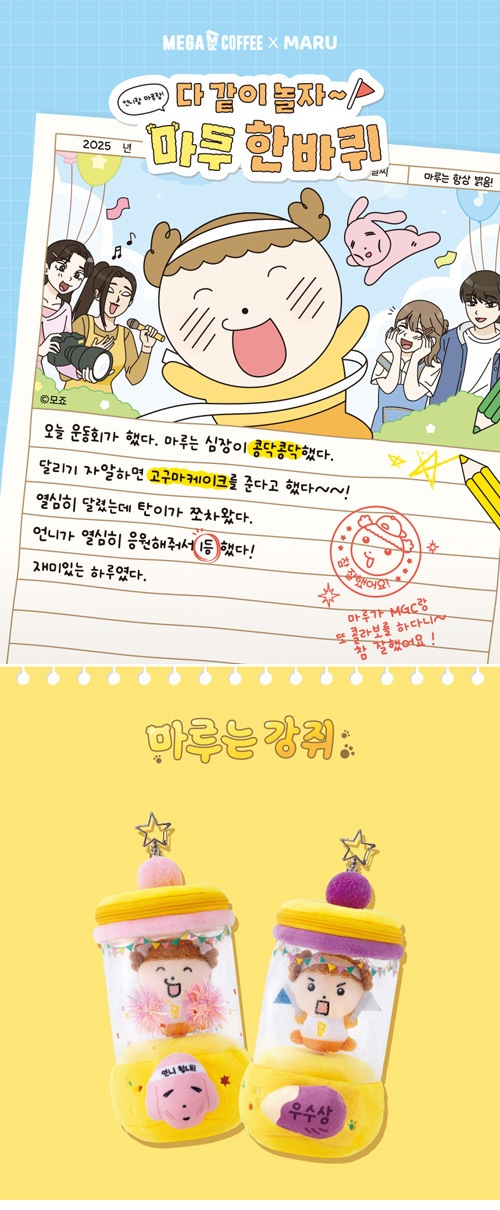 MEGA MGC COFFEE X MARU
언니랑 마루랑!
다 같이 놀자~
마루 한바퀴
2025 년
마루는 항상 맑음!
©모죠
오늘 운동회가 했다. 마루는 심장이 콩닥콩닥했다.
달리기 자알하면 고구마케이크를 준다고 했다~~!
열심히 달렸는데 탄이가 쪼차왔다.
언니가 열심히 응원해줘서 1등 했다!
재미있는 하루였다.
참 잘했어요!
마루가 MGC랑
또 콜라보를 하다니~
참 잘했어요!
마루는 강쥐
언니 힘내!
우수상